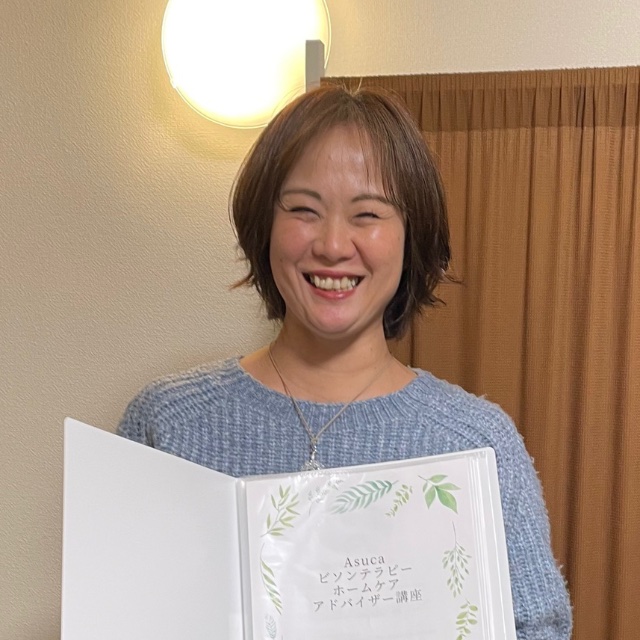 Asuca
ピソンテラピー
ホームケア
アドバイザー講座